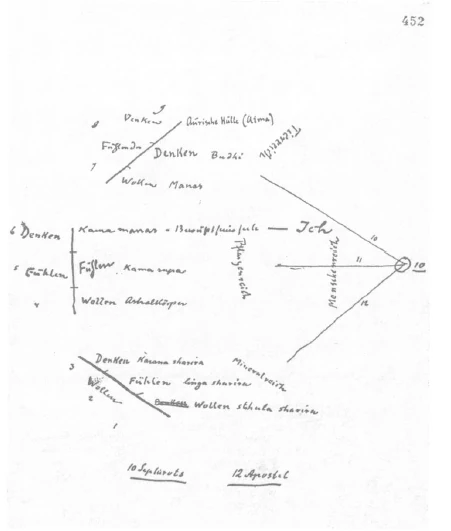 452
9
8 Denken Aurische Hülle (Atma)
Fühlen Denken Budhi Tierreich
7 Wollen Manas
6 Denken Kama manas - Bewußtseinsseele — Ich
10
5 Fühlen Fühlen Kama rupa Pflanzenreich Menschenreich 11 10
4 Wollen Astralkörper
12
3 Denken Karana sharira Mineralreich
Wollen Fühlen linga sharira
2 Wollen sthula sharira
1
10 Sephirots 12 Apostel